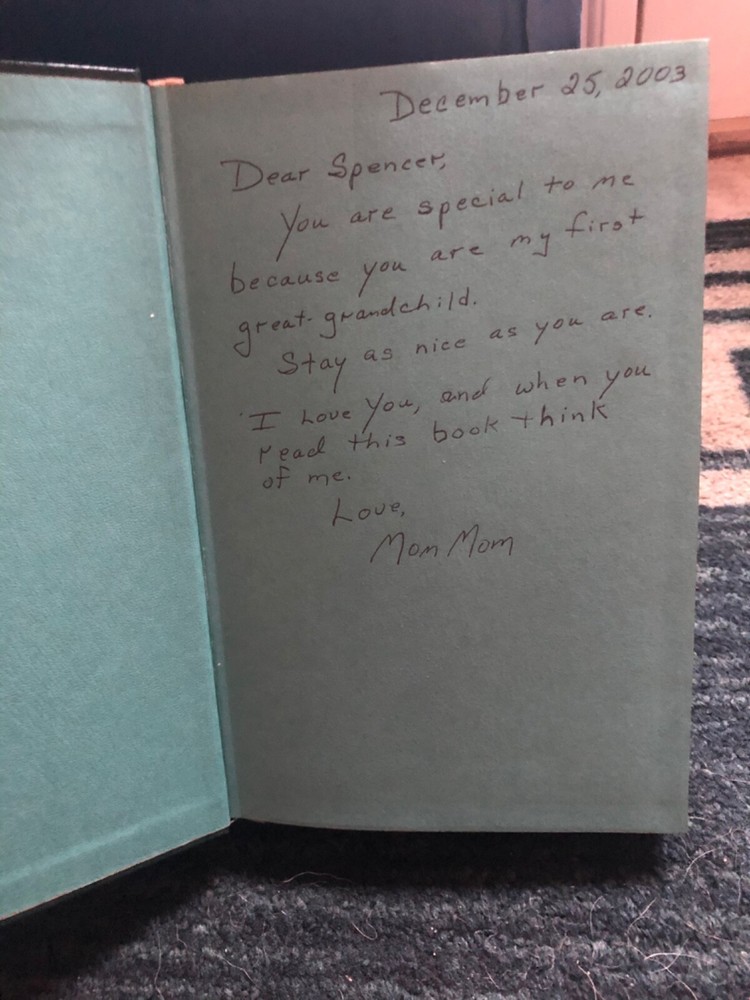 December 25, 2003
Dear Spencer,
You are special to me
because you are my first
great-grandchild.
Stay as nice as you are.
I Love You, and when you
read this book think
of me.
Love,
Mom Mom